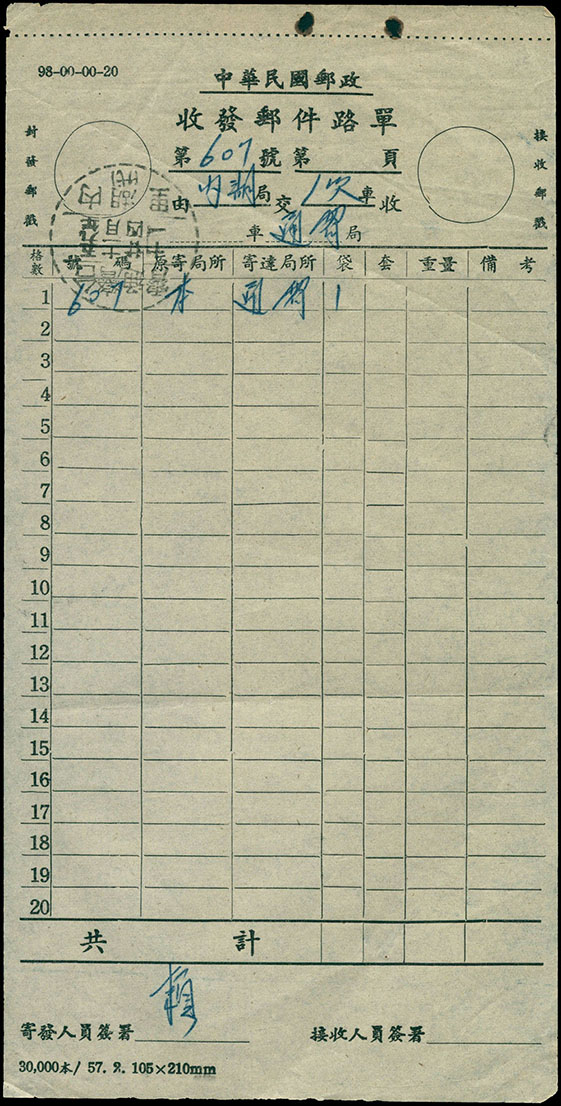 98-00-00-20
中華民國郵政
收發郵件路單
封發郵戳
接收郵戳
第607號第 頁
由內湖局交1次車收
車通霄局
內湖
格數 號碼 原寄局所 寄達局所 袋 套 重量 備考
1 607 本 通霄 1
2
3
4
5
6
7
8
9
10
11
12
13
14
15
16
17
18
19
20
共計
賴
寄發人員簽署
接收人員簽署
30,000本/ 57. 2. 105×210mm